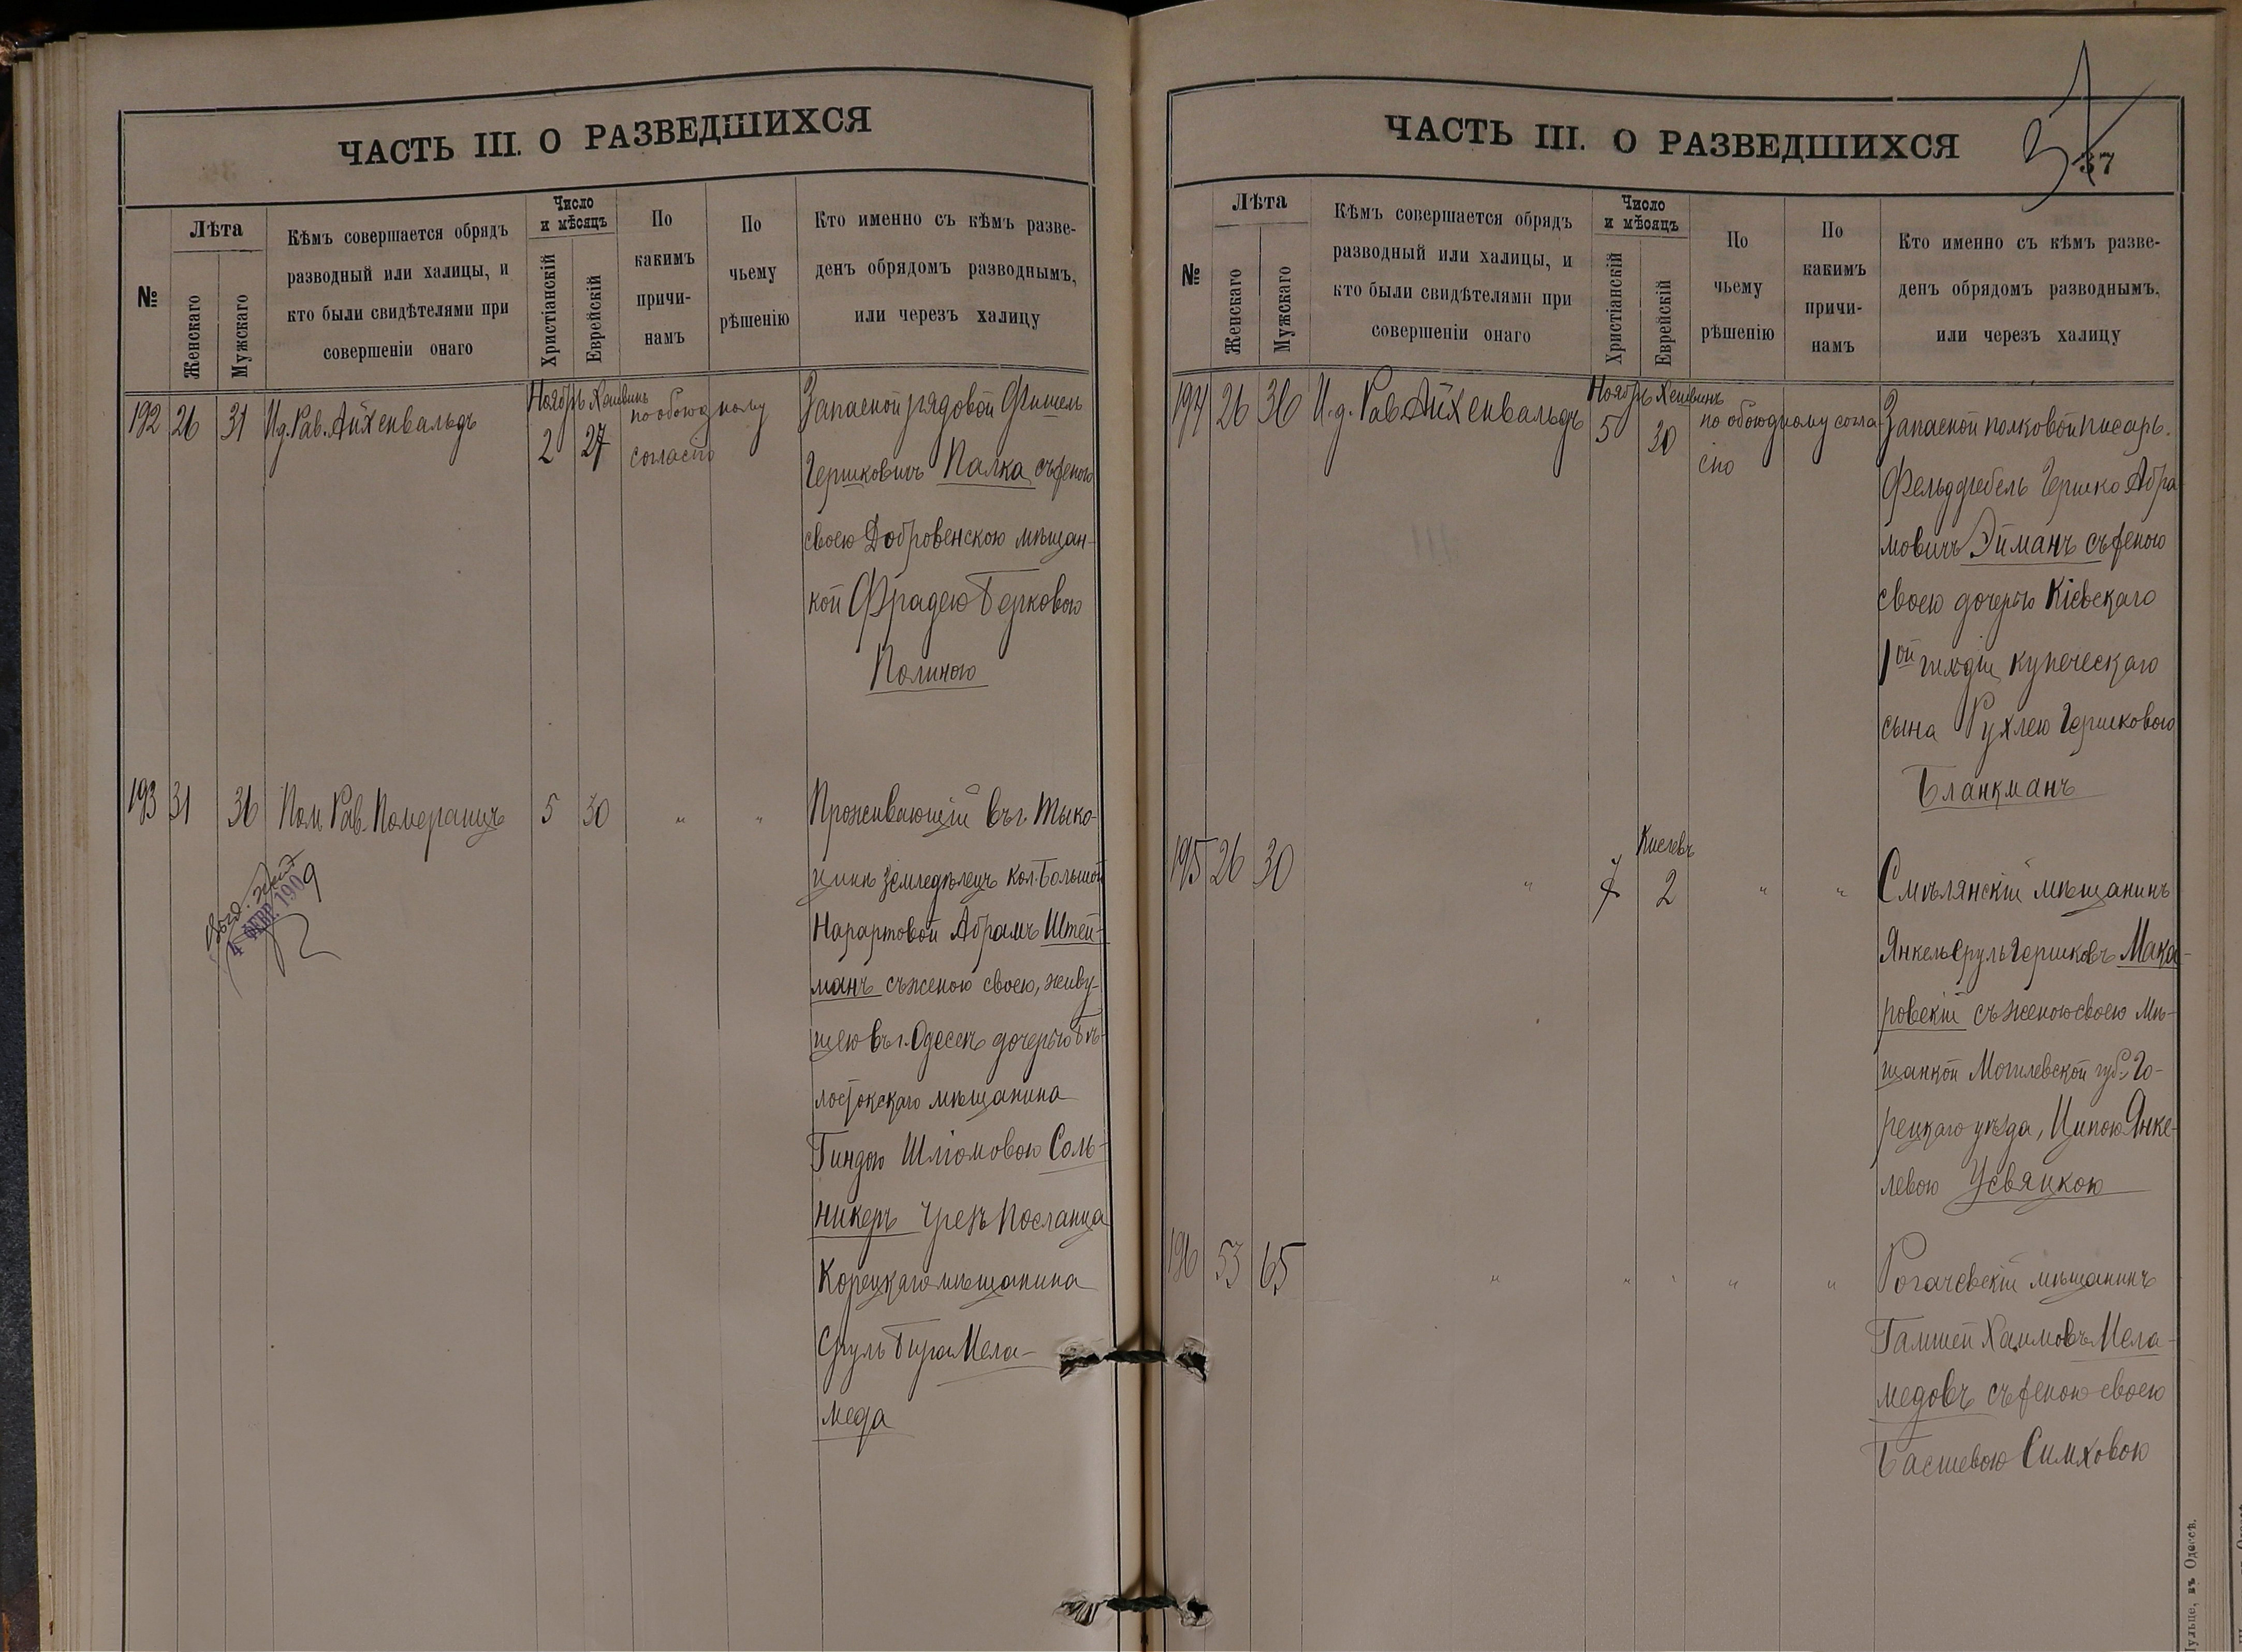 ЧАСТЬ III. О РАЗВЕДШИХСЯ
№
Лѣта
Женскаго
Мужскаго
Кѣмъ совершается обрядъ
разводный или халицы, и
кто были свидѣтелями при
совершеніи онаго
Число
и мѣсяцъ
Христіанскій
Еврейскій
По
какимъ
причи-
намъ
По
чьему
рѣшенію
Кто именно съ кѣмъ разве-
денъ обрядомъ разводнымъ,
или черезъ халицу
192 26 31 И.д. Рав. Айхенвальдъ
Ноябрь Хешвинъ
2 27
по обоюдному
согласію
Запасной рядовой Фишель
Гершковичъ Палка съ женою
своею Добровенскою мѣщан-
кой Фрадею Берковою
Полиною
193 31 36 Пом. Рав. Померанцъ 5 30 " "
4 ФЕВР. 1909
Проживающій въ г. Тыко-
цинѣ земледѣлецъ кол. Большой
Нарартовой Абрамъ Штей-
манъ съ женою своею, живу-
щею въ г. Одессѣ дочерью Бѣ-
лостокскаго мѣщанина
Гиндою Шліомовою Соль-
никеръ чрезъ посланца
Корецкаго мѣщанина
Сруль Бера Мела-
меда
ЧАСТЬ III. О РАЗВЕДШИХСЯ
37
37
№
Лѣта
Женскаго
Мужскаго
Кѣмъ совершается обрядъ
разводный или халицы, и
кто были свидѣтелями при
совершеніи онаго
Число
и мѣсяцъ
Христіанскій
Еврейскій
По
чьему
рѣшенію
По
какимъ
причи-
намъ
Кто именно съ кѣмъ разве-
денъ обрядомъ разводнымъ,
или черезъ халицу
194 26 36 И.д. Рав. Айхенвальдъ
Ноябрь Хешвинъ
5 30
по обоюдному согла
сію
Запасной полковой писарь.
Фельдфебель Гершко Абра
мовичъ Эйманъ съ женою
своею дочерью Кіевскаго
1ой гильдіи купеческаго
сына Рухлею Гершковою
Бланкманъ
Кислевъ
195 26 30 " 7 2 " "
Смѣлянскій мѣщанинъ
Янкель Сруль Гершковъ Мака-
ровскій съ женою своею мѣ-
щанкой Могилевской губ. Го-
рецкаго уѣзда, Ципою Янке-
левою Усвяцкою
196 53 65 " " " " "
Рогачевскій мѣщанинъ
Гамшей Хаимовъ Мела-
медовъ съ женою своею
Басшевою Симховою
Шульце, въ Одессѣ.